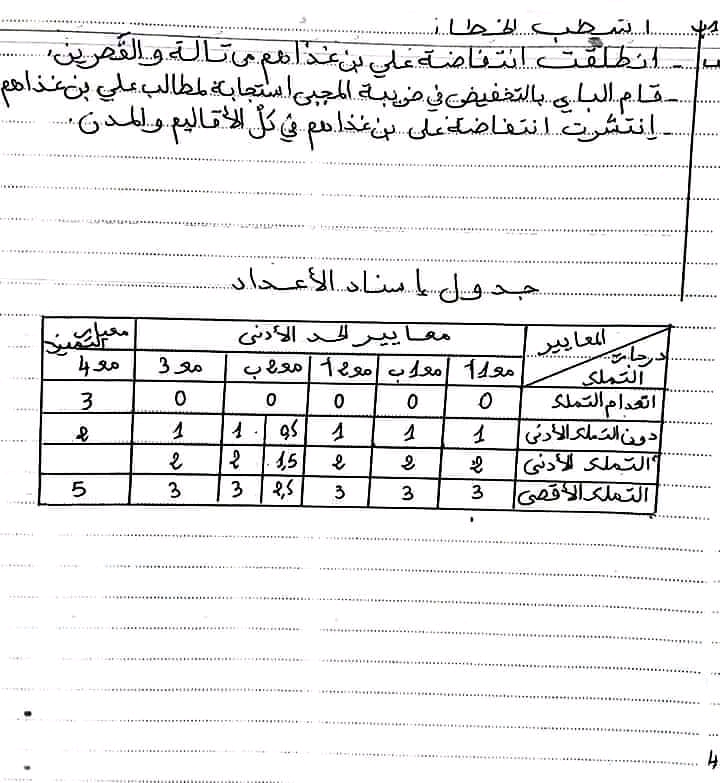 أشطب الخطأ:
- انطلقت انتفاضة علي بن غذاهم من تالة والقصرين.
- قام الباي بالتخفيض في ضريبة المجبى استجابة لمطالب علي بن غذاهم
- إنتشرت انتفاضة علي بن غذاهم في كل الأقاليم والمدن.
جدول إسناد الأعداد
المعايير درجات التملك معايير الحد الأدنى معيار التميز
مع1أ مع1ب مع2أ مع2ب مع3 مع4
انعدام التملك 0 0 0 0 0 3
دون التملك الأدنى 1 1 1 0,5 1 1 2
التملك الأدنى 2 2 2 1,5 2 2
التملك الأقصى 3 3 3 2,5 3 3 5
4